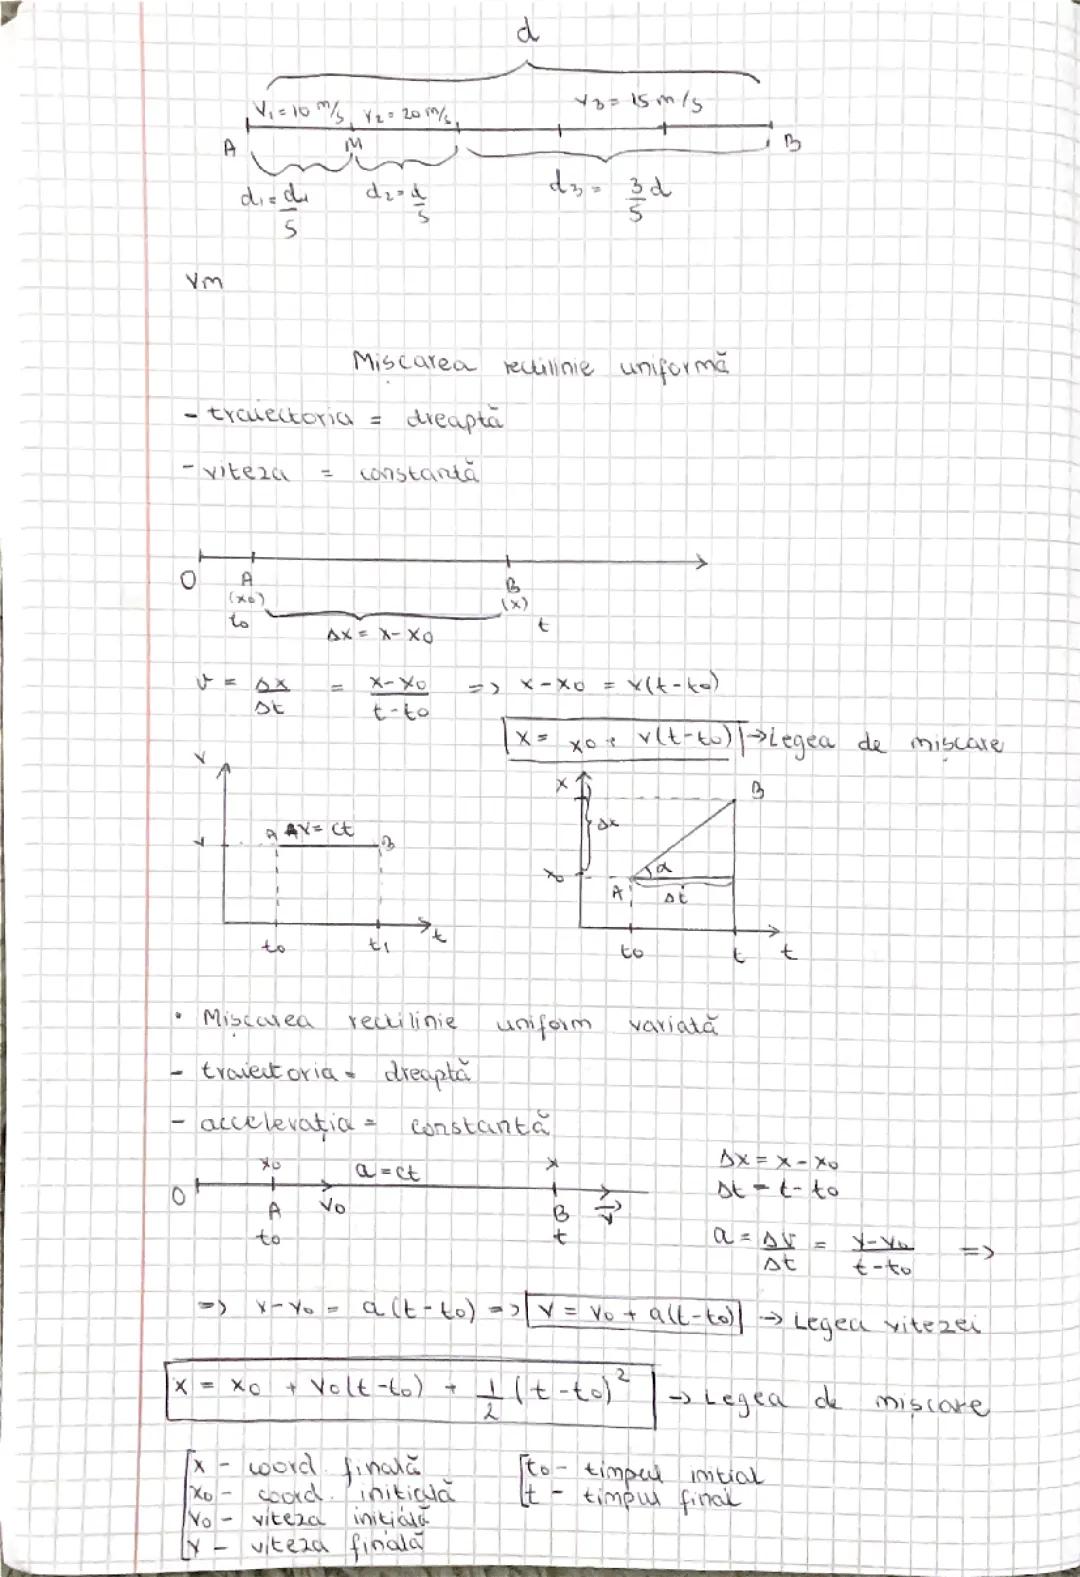 d
V₁=10 m/s V₂=20 m/s V₃=15 m/s
A M B
d₁=d/5 d₂=d/5 d₃=3/5 d
Vm
Miscarea rectilinie uniformă
- traiectoria = dreaptă
- viteza = constantă
O A B
(x₀) (x)
t₀ t
Δx = x-x₀
v = Δx/Δt = x-x₀/t-t₀ => x-x₀ = v(t-t₀)
x = x₀ + v(t-t₀) → Legea de miscare
v x B
Δx
v A v=ct B
x₀ α
A Δt
t₀ t₁ t t₀ t t
• Mișcarea rectilinie uniform variată
- traiectoria = dreaptă
- accelerația = constantă
x₀ a=ct x Δx = x-x₀
O Δt = t-t₀
A V₀ B v
t₀ t a = Δv/Δt = v-v₀/t-t₀ =>
=> v-v₀ = a(t-t₀) => v = v₀ + a(t-t₀) → Legea vitezei
x = x₀ + v₀(t-t₀) + 1/2 (t-t₀)² → Legea de mișcare
x - coord. finală t₀ - timpul initial
x₀ - coord. initială t - timpul final
v₀ - viteza inițială
v - viteza finală